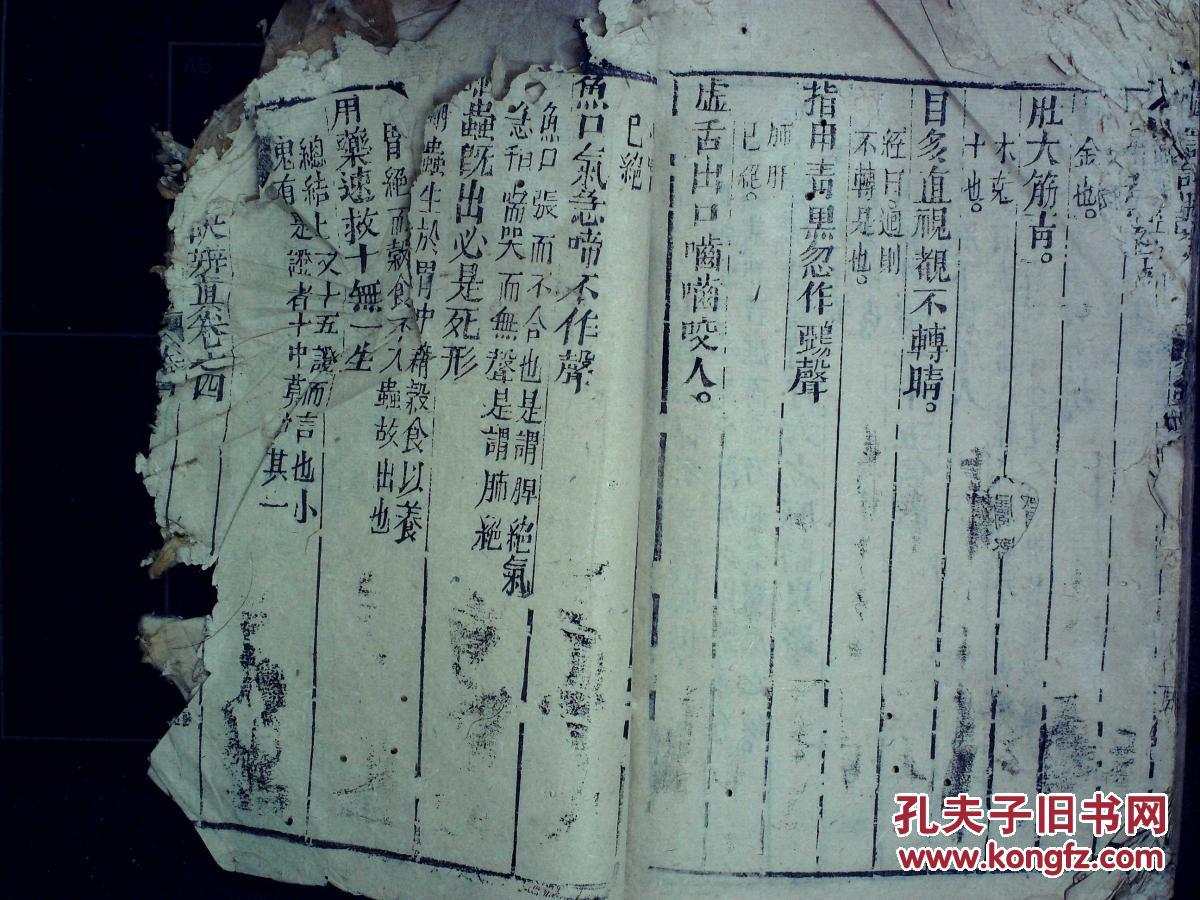 金也。
肚大筋青。
木克
十也。
目多直視覩不轉睛。
經曰過則
不轉是也。
指甲青黑忽作鵶聲
肺肝
已絕。
虛舌出口嚙嚙咬人。
已絕
魚口氣急啼不作聲
魚口張而不合也是謂脾絕氣
急啼哭而無聲是謂肺絕
蟲旣出必是死形
蟲生於胃中藉穀食以養
胃絕而穀食不入蟲故出也
用藥速救十無一生
總結上文十五證而言也小
兒有是證者十中莫 其一
訣辨眞卷之四
孔夫子旧书网
www.kongfz.com